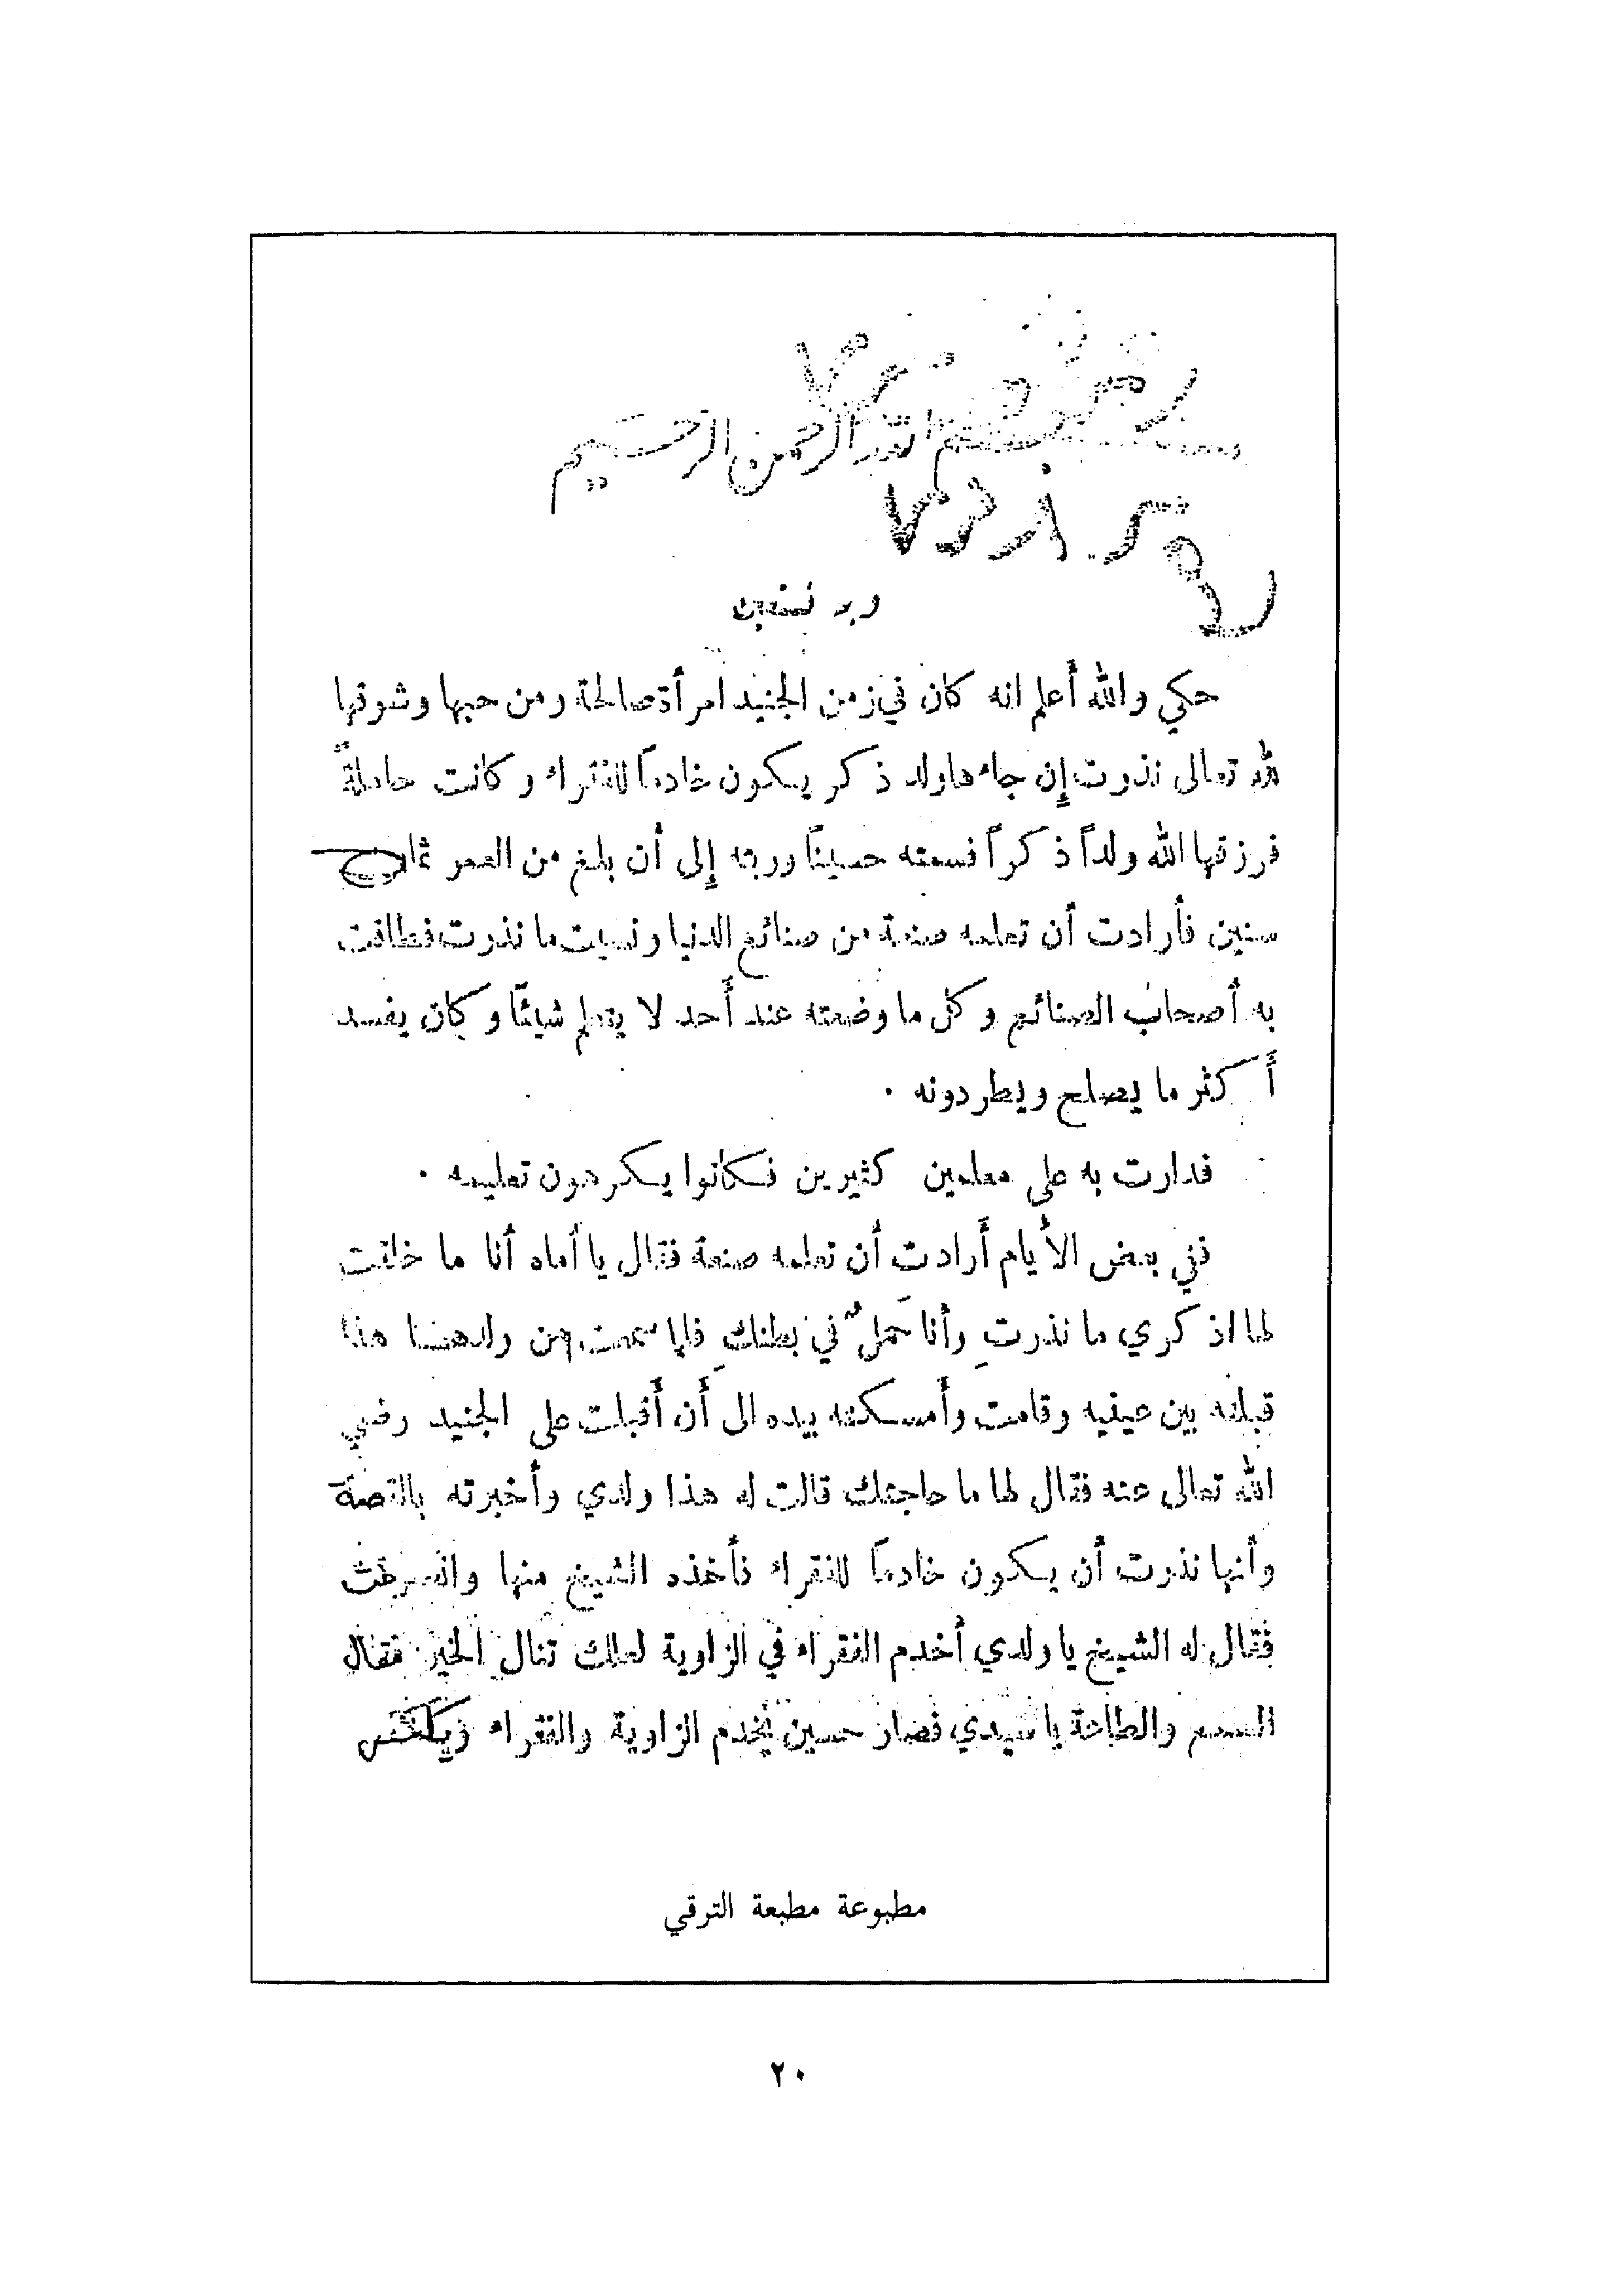 بسم الله الرحمن الرحيم
وبه نستعين
حكي والله أعلم انه كان في زمن الجنيد امرأة صالحة ومن حبها وشوقها
لله تعالى نذرت إن جاءها ولد ذكر يكون خادماً للفقراء وكانت حاملةً
فرزقها الله ولداً ذكراً فسمته حسيناً وربته إلى أن بلغ من العمر ثمان
سنين فأرادت أن تعلمه صنعة من صنائع الدنيا ونسيت ما نذرت فطافت
به أصحاب الصنائع وكل ما وضعته عند أحد لا يتعلم شيئاً وكان يفسد
أكثر ما يصلح ويطردونه ٠
فدارت به على معلمين كثيرين فكانوا يكرهون تعليمه ٠
ففي بعض الأيام أرادت أن تعلمه صنعة فقال يا أماه أنا ما خلقت
لها اذكري ما نذرتِ وأنا حَملٌ في بطنكِ فلما سمعت من ولدها هذا
قبلته بين عينيه وقامت وأمسكته بيده الى أن أقبلت على الجنيد رضي
الله تعالى عنه فقال لها ما حاجتك قالت له هذا ولدي وأخبرته بالقصة
وأنها نذرت أن يكون خادماً للفقراء فأخذه الشيخ منها وانصرفت
فقال له الشيخ يا ولدي أخدم الفقراء في الزاوية لعلك تنال الخير فقال
السمع والطاعة يا سيدي فصار حسين يخدم الزاوية والفقراء ويكنس
مطبوعة مطبعة الترقي
٢٠